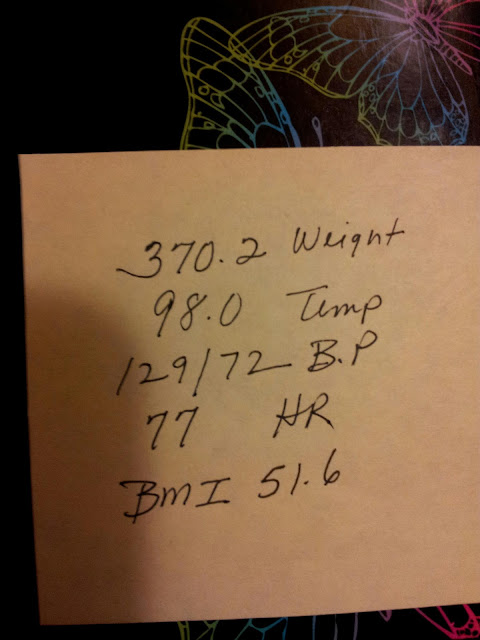 370.2 Weight
98.0 Temp
129/72 B.P
77 HR
BMI 51.6